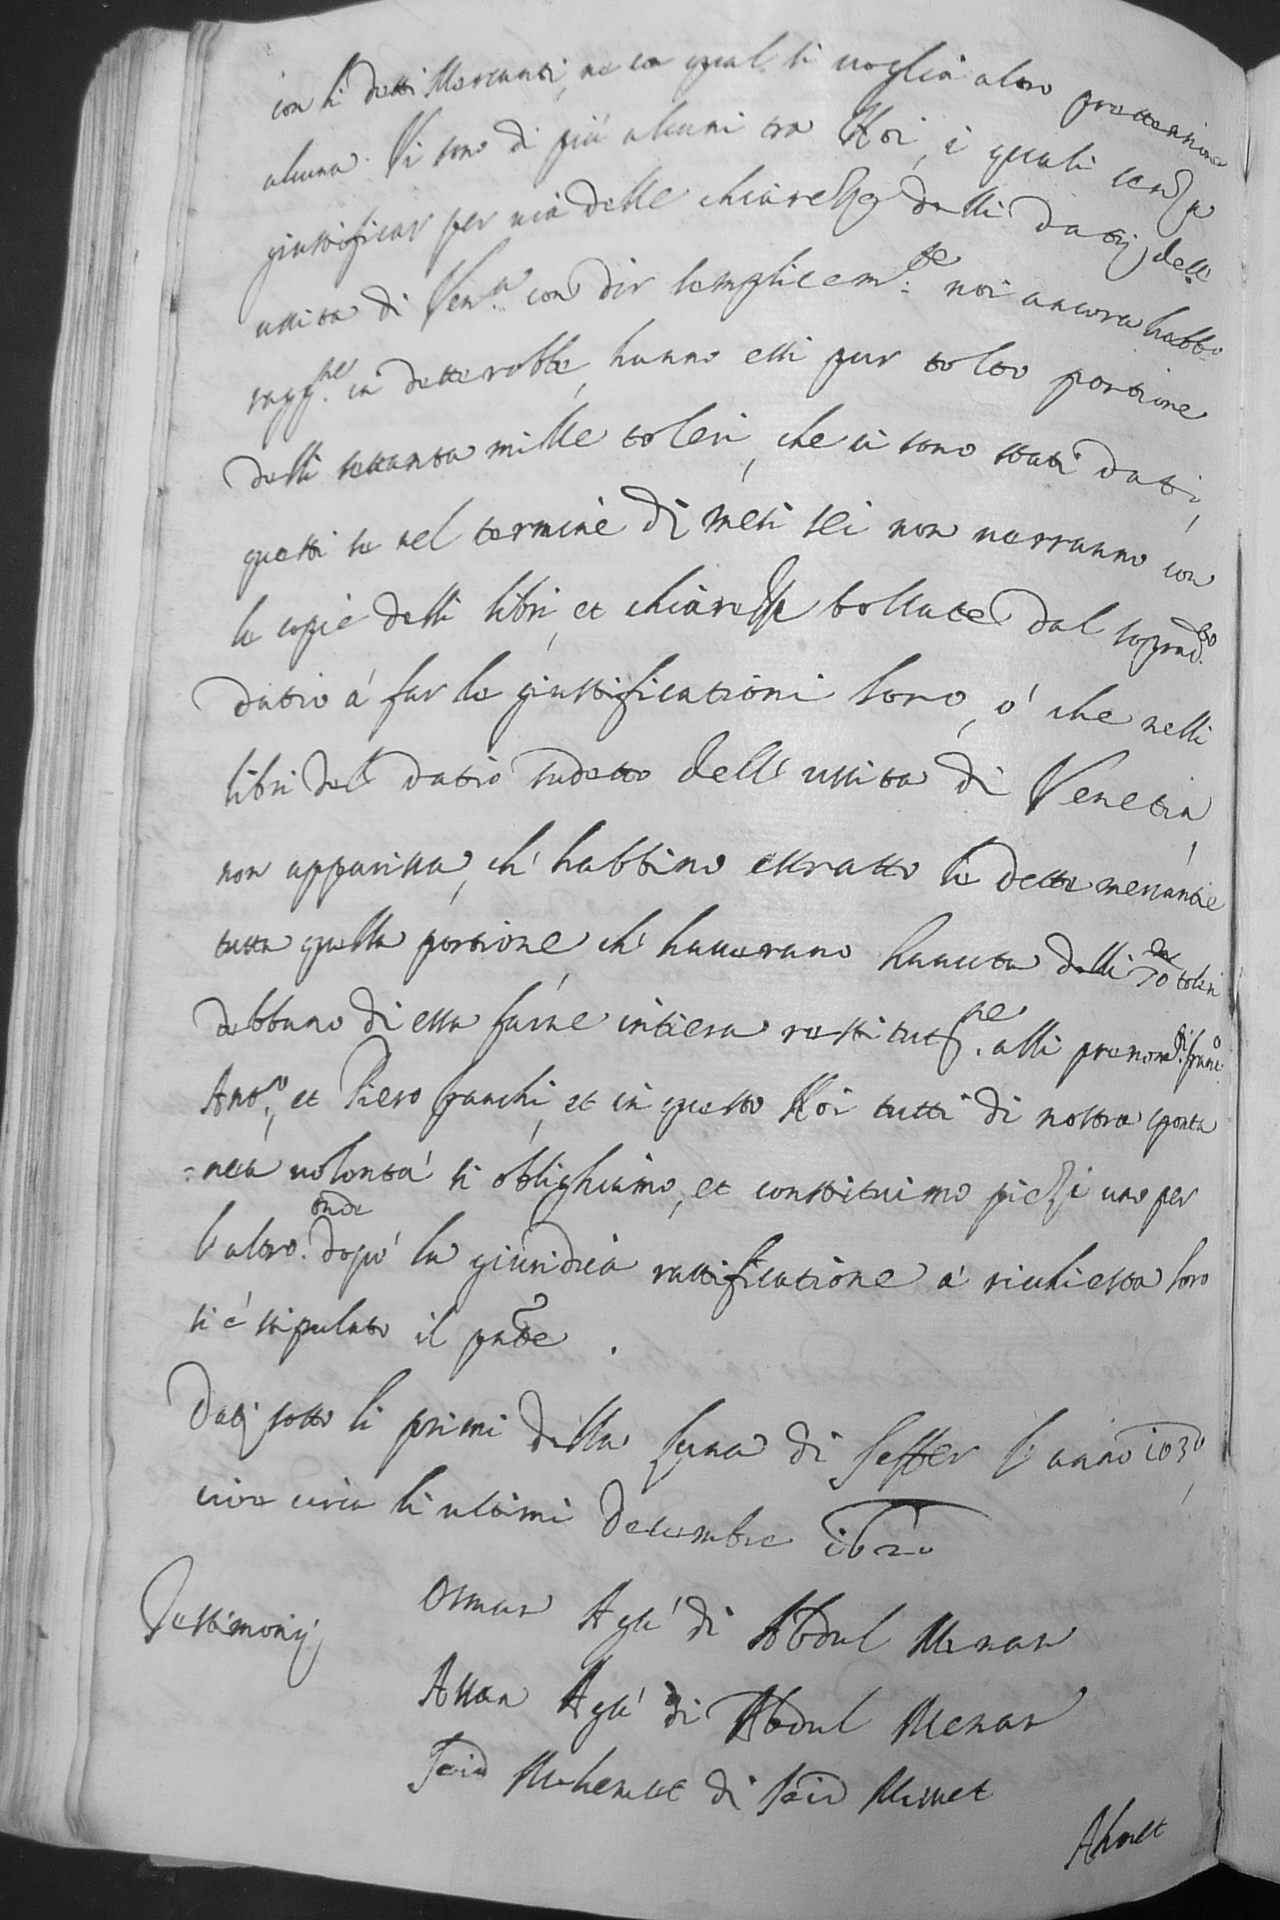 con li detti Mercanti, ne in qual si voglia altro prettensione
alcuna. Vi sono di più alcuni tra Noi, i quali senza
giustificar per via delle chiarezze delli datij dell'
ussita di Ven.a con dir semplicem.te noi ancora habbo
ragg.ne in dette robbe, hanno essi pur tolto portione
delli settanta mille toleri, che ci sono stati dati,
questi se nel termine di mesi sei non verranno con
le copie delli libri, et chiarezze bollate dal soprad.to
datio à far le giustificationi loro, ò che nelli
libri del datio sudetto dell'ussita di Venetia,
non apparissa, ch' habbino estratto le dette mercantie
tutta quella portione ch' haveranno havuta delli 70 toleri
debbano di essa farne intiera restitut.ne alli prenom.ti Franc.o
Ant.o, et Piero Franchi, et in questo Noi tutti di nostra sponta
=nea volontà si oblighiamo, et constituimo piezi uno per
l'altro. onde dopò la giuridica rattificatione à richiesta loro
si è stipulato il pnte.
Datj sotto li primi della luna di Seffer l'anno 1030,
cioè circa li ultimi Decembre 1620
Testimonij, Osman Agà di Abdul Menan
Assan Agà di Abdul Menan
Seid Mehemet di Seid Memet
Ahmet